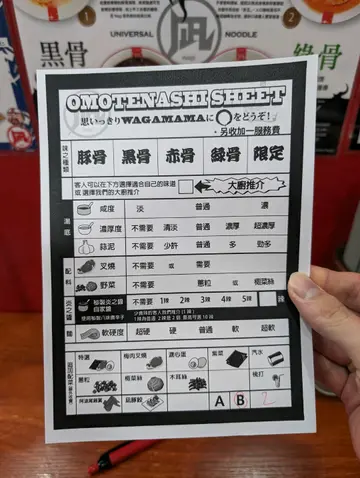 UNIVERSAL NOODLE
凪
黒骨
2
緑骨
OMOTENASHI SHEET
思いっきりWAGAMAMAに○をどうぞ!
・另收加一服務費
味之種類
豚骨 黒骨 赤骨 緑骨 限定
客人可以在下方選擇適合自己的味道
或 選擇我們的大廚推介
大廚推介
湯底
咸度 淡 普通 濃
濃厚度 不需要 清淡 普通 濃厚 超濃厚
蒜泥 不需要 少許 普通 多 勁多
配料
叉燒 不需要 或 需要
野菜 不需要 蔥粒 或 椰菜絲
炎之醬
秘製炎之醬
自家醬
不需要 1辣 2辣 3辣 4辣 5辣 辣
麵
軟硬度 超硬 硬 普通 軟 超軟
特選 梅肉叉燒 溏心蛋 紫菜 汽水
蔥粒 椰菜絲 木耳絲 梳打
A B 2